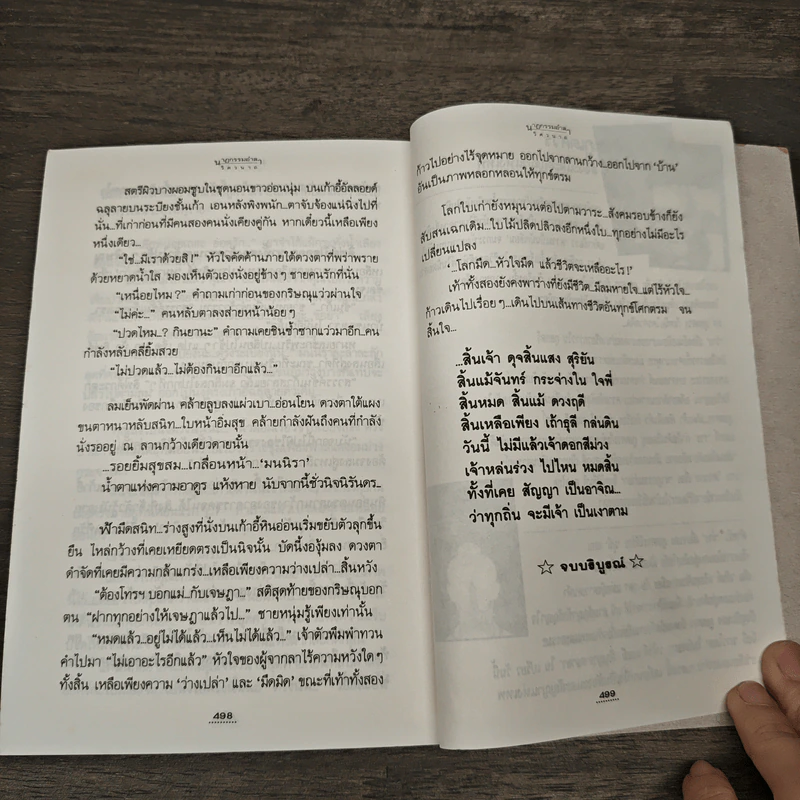 นาฏกรรมอำลา
วิศวนาถ
สตรีผิวบางผอมซูบในชุดนอนขาวอ่อนนุ่ม บนเก้าอี้อัลลอยด์
ฉลุลายบนระเบียงชั้นเก้า เอนหลังพิงพนัก...ตาจับจ้องแน่นิ่งไปที่
นั่น...ที่เก่าก่อนที่มีคนสองคนนั่งเคียงคู่กัน หากเดี๋ยวนี้เหลือเพียง
หนึ่งเดียว...
“ใช่...มีเราด้วยสิ !” หัวใจคัดค้านภายใต้ดวงตาที่พร่าพราย
ด้วยหยาดน้ำใส มองเห็นตัวเองนั่งอยู่ข้างๆ ชายคนรักที่นั่น
“เหนื่อยไหม ?” คำถามเก่าก่อนของกริษณุแว่วผ่านใจ
“ไม่ค่ะ...” คนหลับตาลงส่ายหน้าน้อยๆ
“ปวดไหม...? กินยานะ” คำถามเคยชินซ้ำซากแว่วมาอีก...คน
กำลังหลับคลี่ยิ้มสวย
“ไม่ปวดแล้ว...ไม่ต้องกินยาอีกแล้ว...”
ลมเย็นพัดผ่าน คล้ายลูบลงแผ่วเบา...อ่อนโยน ดวงตาใต้แผง
ขนตาหนาหลับสนิท...ใบหน้าอิ่มสุข คล้ายกำลังฝันถึงคนที่กำลัง
นั่งรออยู่ ณ ลานกว้างเดียวดายนั้น
...รอยยิ้มสุขสม...เกลื่อนหน้า...‘มนนิรา’
น้ำตาแห่งความอาดูร แห้งหาย นับจากนี้ชั่วนิจนิรันดร..
ฟ้ามืดสนิท...ร่างสูงที่นั่งบนเก้าอี้หินอ่อนเริ่มขยับตัวลุกขึ้น
ยืน ไหล่กว้างที่เคยเหยียดตรงเป็นนิจนั้น บัดนี้งองุ้มลง ดวงตา
ดำจัดที่เคยมีความกล้าแกร่ง...เหลือเพียงความว่างเปล่า...สิ้นหวัง
“ต้องโทรฯ บอกแม่...กับเจษฎา...” สติสุดท้ายของกริษณุบอก
ตน “ฝากทุกอย่างให้เจษฎาแล้วไป...” ชายหนุ่มรู้เพียงเท่านั้น
“หมดแล้ว...อยู่ไม่ได้แล้ว...เห็นไม่ได้แล้ว...” เจ้าตัวพึมพำทวน
คำไปมา “ไม่เอาอะไรอีกแล้ว” หัวใจของผู้จากลาไร้ความหวังใดๆ
ทั้งสิ้น เหลือเพียงความ ‘ว่างเปล่า’ และ ‘มืดมิด’ ขณะที่เท้าทั้งสอง
498
นาฏกรรมอำลา
วิศวนาถ
ก้าวไปอย่างไร้จุดหมาย ออกไปจากลานกว้าง...ออกไปจาก ‘บ้าน’
อันเป็นภาพหลอกหลอนให้ทุกข์ตรม
โลกใบเก่ายังหมุนวนต่อไปตามวาระ...สังคมรอบข้างก็ยัง
สับสนเฉกเดิม...ใบไม้ปลิดปลิวลงอีกหนึ่งใบ...ทุกอย่างไม่มีอะไร
เปลี่ยนแปลง
‘...โลกมืด...หัวใจมืด แล้วชีวิตจะเหลืออะไร !’
เท้าทั้งสองยังคงพาร่างที่ยังมีชีวิต...มีลมหายใจ...แต่ไร้หัวใจ...
ก้าวเดินไปเรื่อยๆ...เดินไปบนเส้นทางชีวิตอันทุกข์โศกตรม จน
สิ้นใจ...
...สิ้นเจ้า ดุจสิ้นแสง สุริยัน
สิ้นแม้จันทร์ กระจ่างใน ใจพี่
สิ้นหมด สิ้นแม้ ดวงฤดี
สิ้นเหลือเพียง เถ้าธุลี กล่นดิน
วันนี้ ไม่มีแล้วเจ้าดอกสีม่วง
เจ้าหล่นร่วง ไปไหน หมดสิ้น
ทั้งที่เคย สัญญา เป็นอาจิณ...
ว่าทุกถิ่น จะมีเจ้า เป็นเงาตาม
☆ จบบริบูรณ์ ☆
499